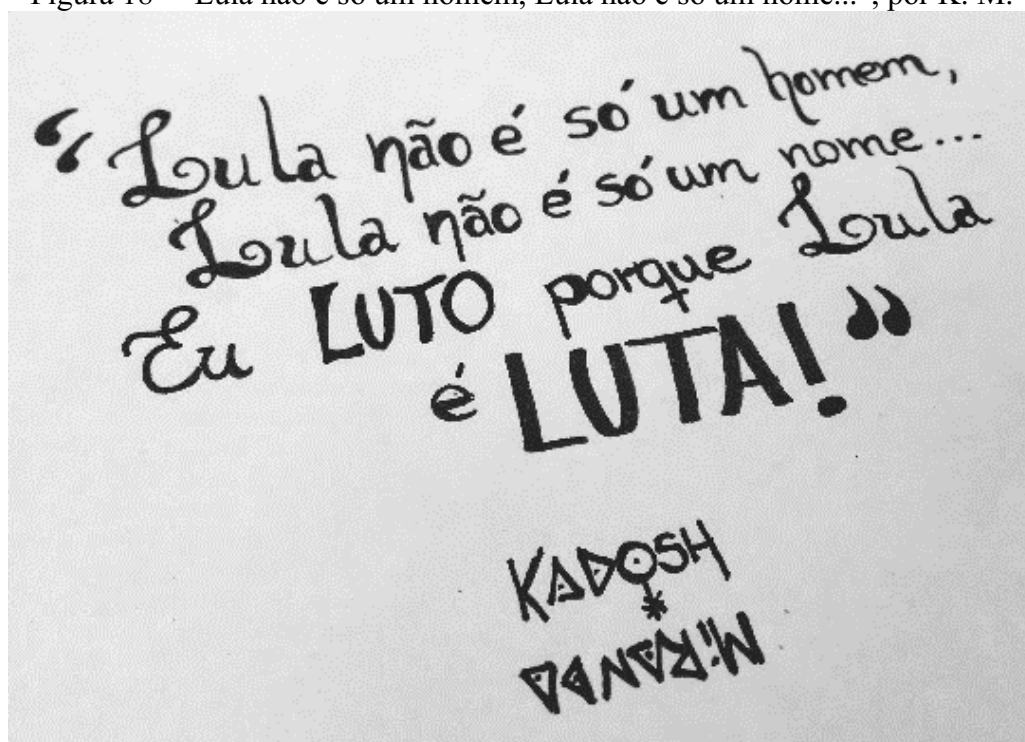 Figura 18 – "Lula não é só um homem, Lula não é só um nome...", por K. M.
“Lula não é só um homem,
Lula não é só um nome...
Eu LUTO porque Lula
é LUTA!”
KADOSH
MiRANDA